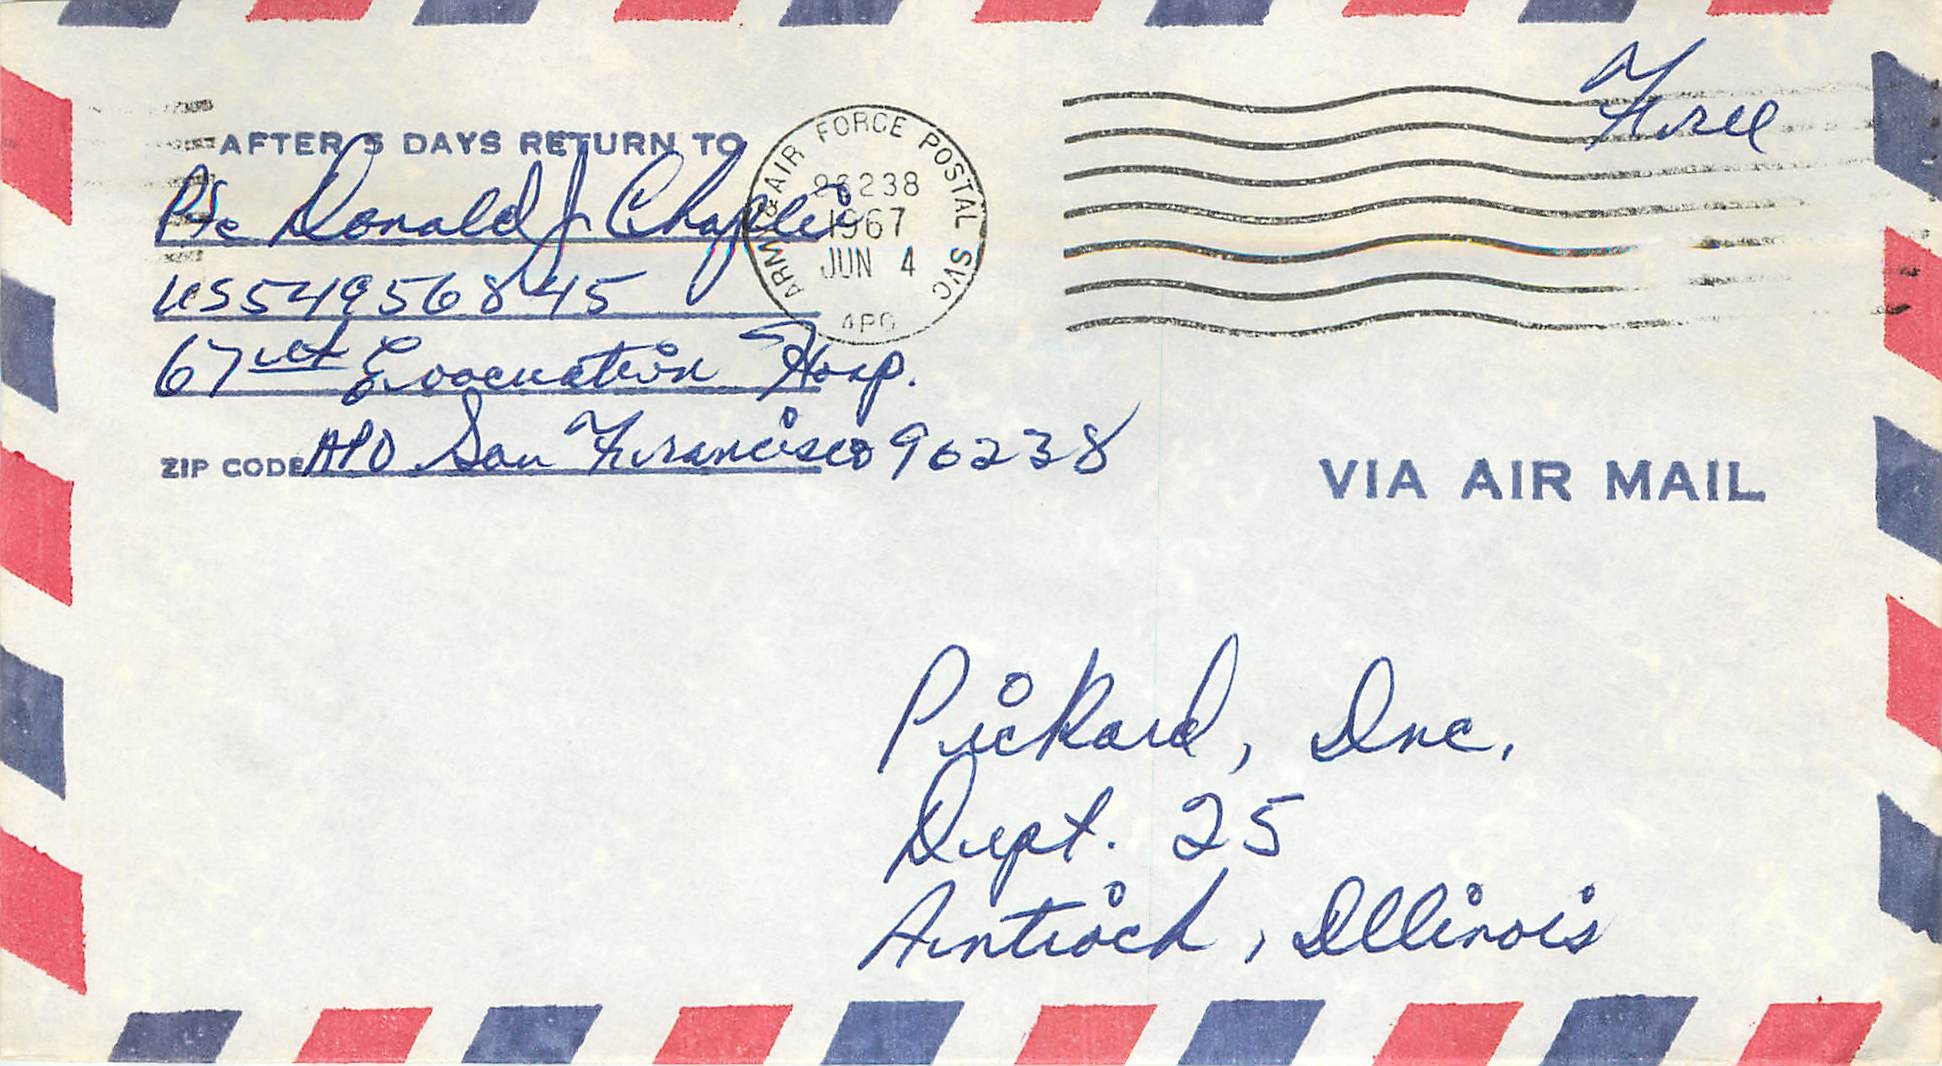 Free
AFTER 5 DAYS RETURN TO
Pfc Donald J Chaplin
US54956845
67th Evacuation Hosp.
ZIP CODE APO San Francisco 96238
ARMY & AIR FORCE POSTAL SVC
96238
1967
JUN 4
APO
VIA AIR MAIL
Pickard, Inc.
Dept. 25
Antioch, Illinois